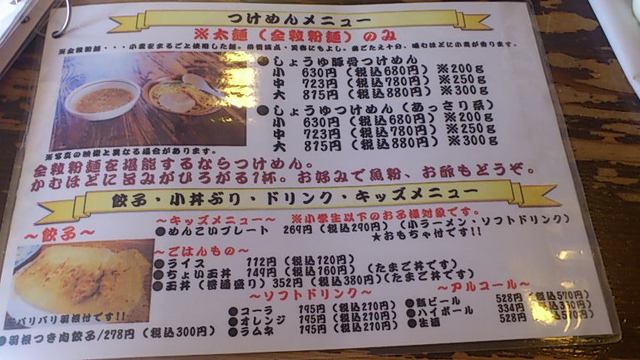 つけめんメニュー
※太麺(全粒粉麺)のみ
●しょうゆ豚骨つけめん
小 630円(税込680円)※200g
中 723円(税込780円)※250g
大 875円(税込880円)※300g
●しょうゆつけめん(あっさり系)
小 630円(税込680円)※200g
中 723円(税込780円)※250g
大 875円(税込880円)※300g
※写真の映像と異なる場合があります。
全粒粉麺を堪能するならつけめん。
かむほどに旨みがひろがる1杯。お好みで魚粉、お酢もどうぞ。
餃子・小丼ぶり・ドリンク・キッズメニュー
～キッズメニュー～ ※小学生以下のお子様対象です。
●めんこいプレート 269円(税込290円)(小ラーメン・ソフトドリンク)
★おもちゃ付です!!
～餃子～
パリパリ羽根付です!!
●羽根つき肉餃子/278円(税込300円)
～ごはんもの～
●ライス 112円(税込120円)
●ちょい玉丼 149円(税込160円)(たまご丼です)
●玉丼(普通盛り)352円(税込380円)(たまご丼です)
～ソフトドリンク～
●コーラ 195円(税込210円)
●オレンジ 195円(税込210円)
●ラムネ 195円(税込210円)
～アルコール～
●瓶ビール 528円(税込570円)
●ハイボール 334円
●生酒 528円